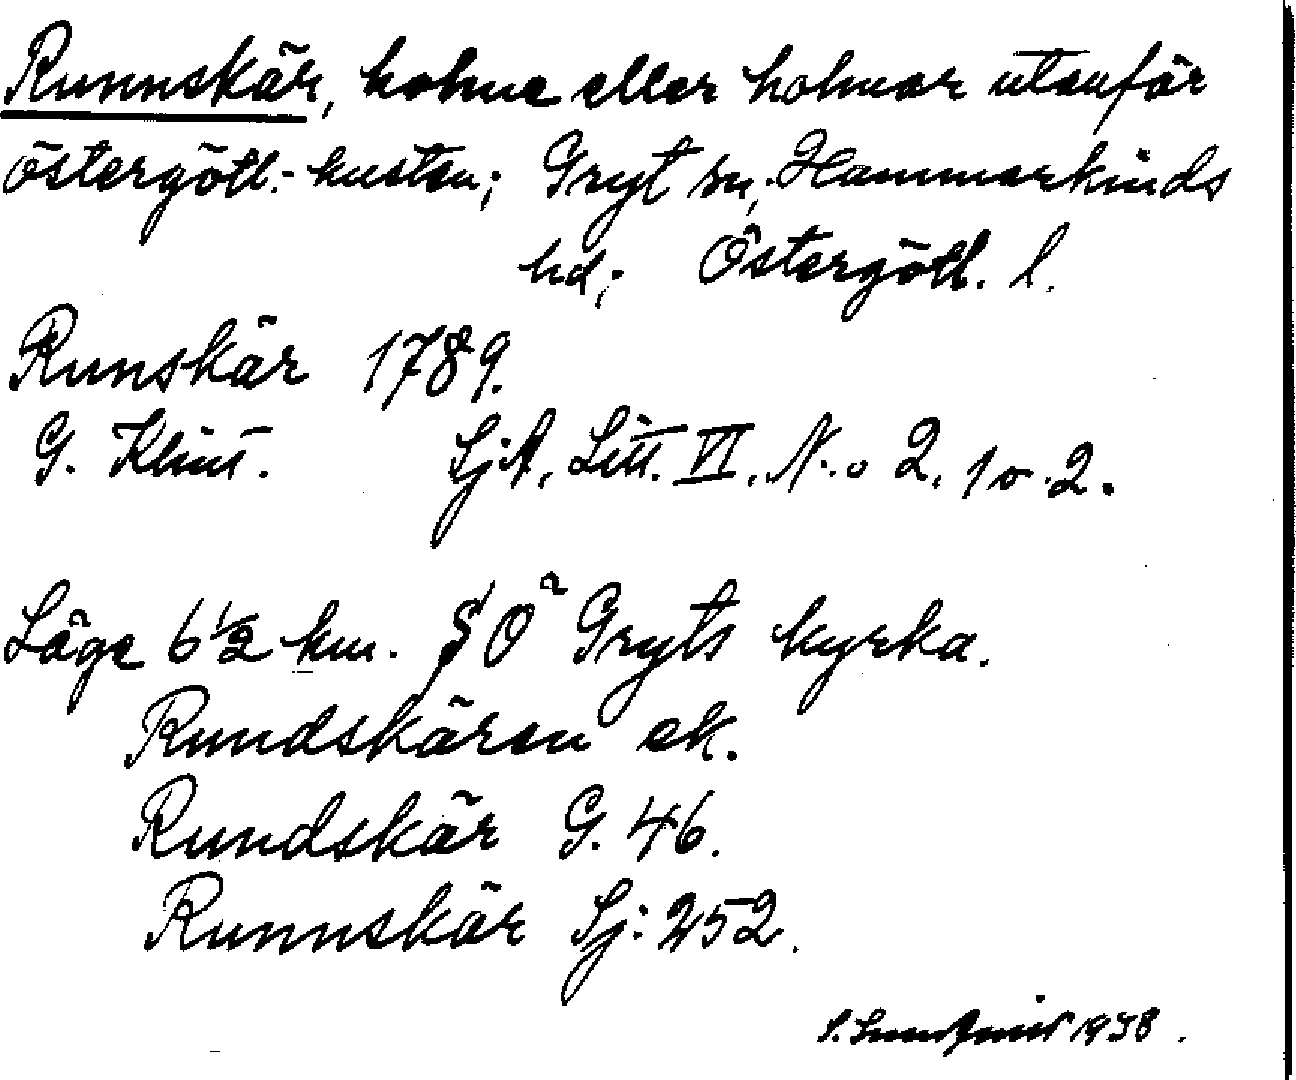 Runnskär, holme eller holmar utanför
östergötl.-kusten; Gryt sn, Hammarkinds
hd; Östergötl. l.
Runskär 1789.
G. Klint. SjA, Litt. VI. N:o 2. 1 o 2.
Läge 6 1/2 km. SO Gryts kyrka.
Rundskären ek.
Rundskär G. 46.
Runnskär Sj: 252.
1938.